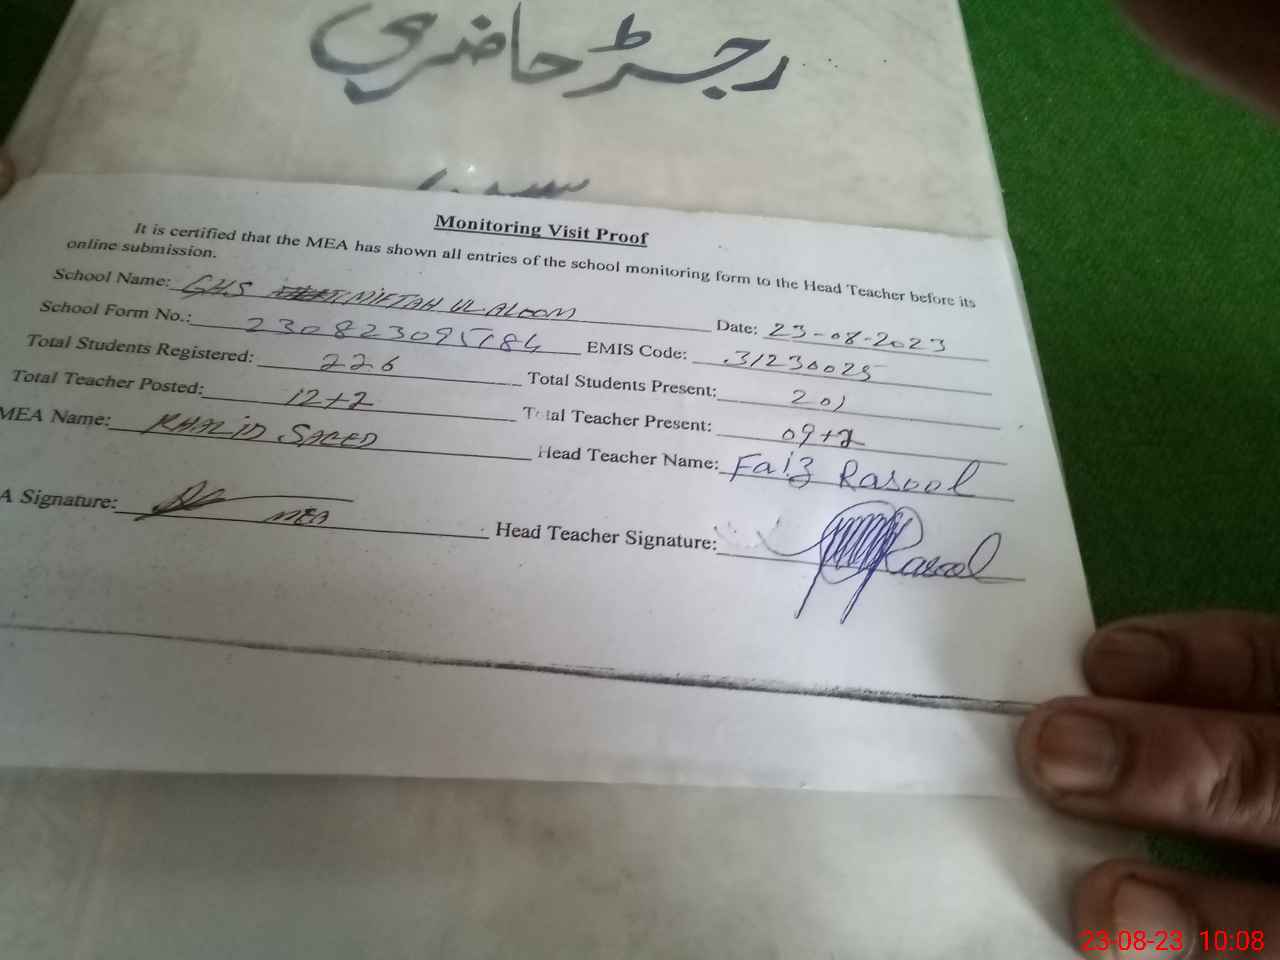 رجسٹر حاضری
Monitoring Visit Proof
It is certified that the MEA has shown all entries of the school monitoring form to the Head Teacher before its
online submission.
School Name: GHS MIFTAH UL ALOOM Date: 23-08-2023
School Form No.: 230823095184 EMIS Code: 31230025
Total Students Registered: 226 Total Students Present: 201
Total Teacher Posted: 12+2 Total Teacher Present: 09+2
MEA Name: KHALID SAEED Head Teacher Name: Faiz Rasool
A Signature: MEA Head Teacher Signature: Rasool
23-08-23 10:08